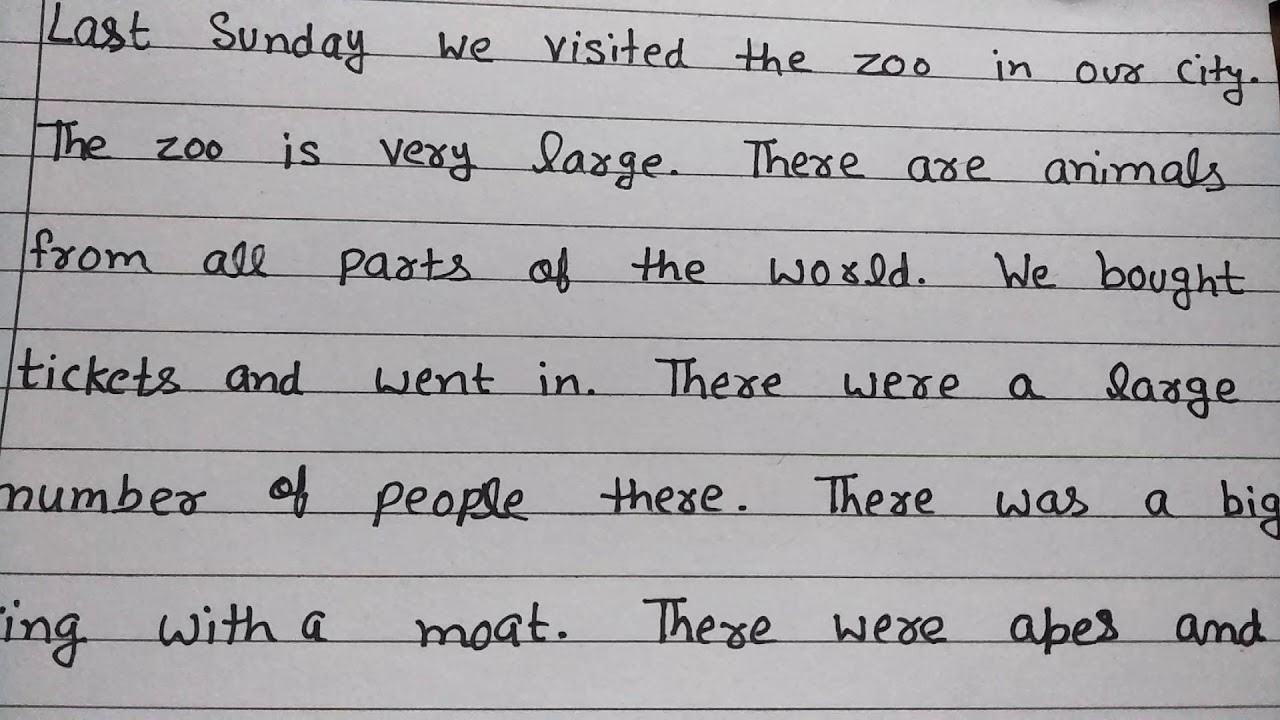 Last Sunday we visited the zoo in our city.
The zoo is very large. There are animals
from all parts of the world. We bought
tickets and went in. There were a large
number of people there. There was a big
ing with a moat. There were apes and